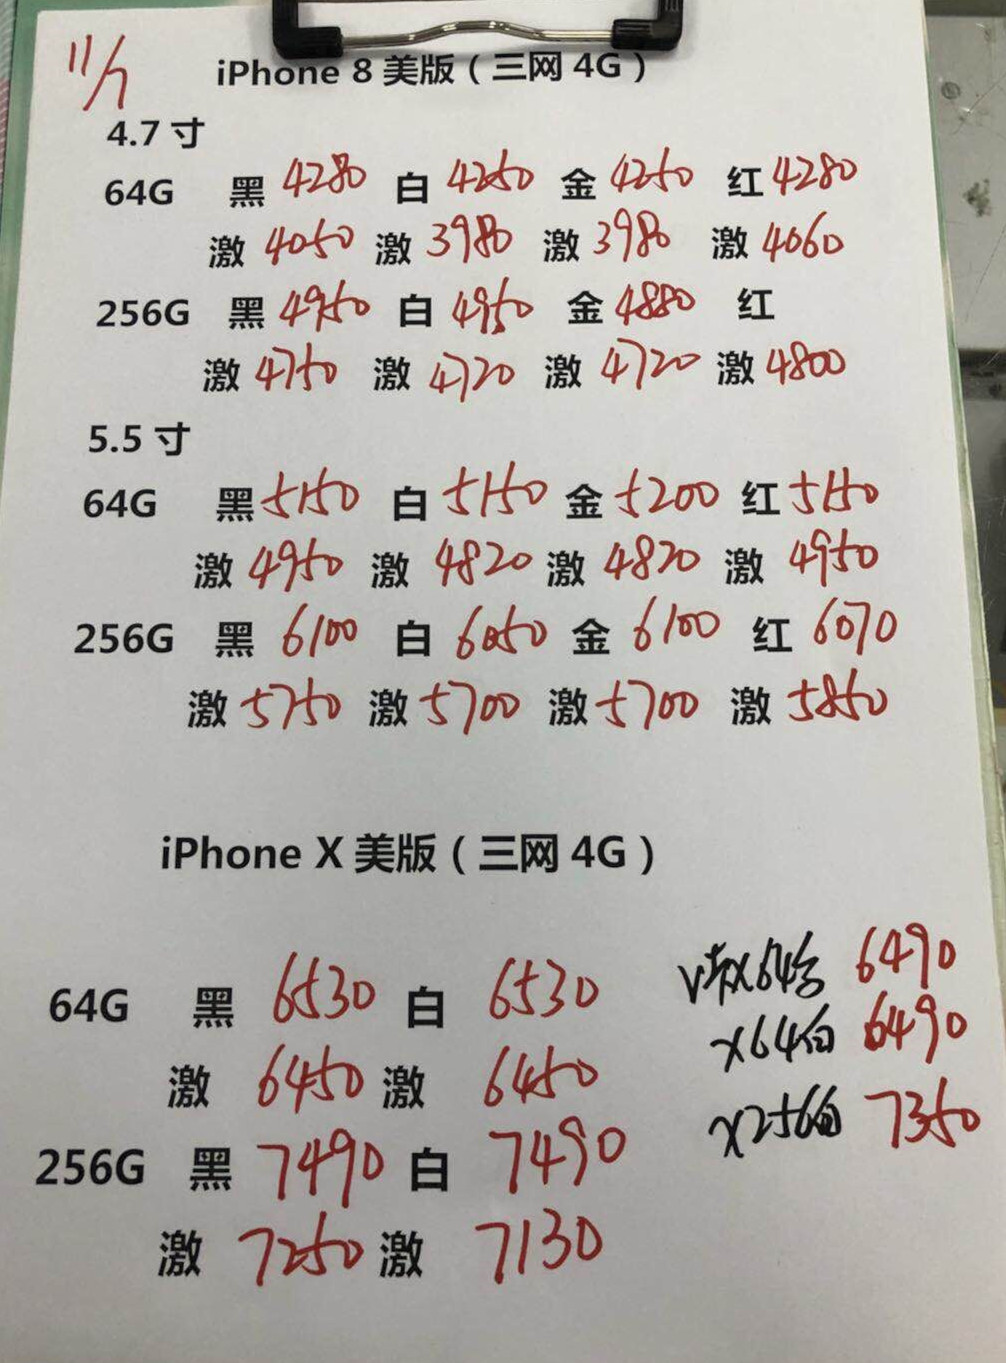 11/7
iPhone 8 美版（三网 4G）
4.7 寸
64G 黑 4280 白 4250 金 4250 红 4280
激 4050 激 3980 激 3980 激 4060
256G 黑 4950 白 4950 金 4880 红
激 4750 激 4720 激 4720 激 4800
5.5 寸
64G 黑 5150 白 5150 金 5200 红 5150
激 4950 激 4820 激 4820 激 4950
256G 黑 6100 白 6050 金 6100 红 6070
激 5750 激 5700 激 5700 激 5850
iPhone X 美版（三网 4G）
64G 黑 6530 白 6530
激 6450 激 6450
256G 黑 7490 白 7490
激 7250 激 7130
X64 6490
X64白 6490
X256白 7350